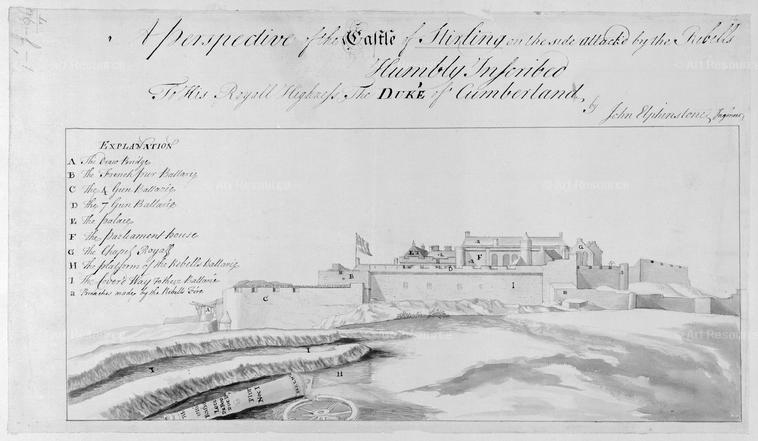 A perspective of the Castle of Stirling on the side attackd by the Rebells
Humbly Inscribed
To His Royall Highness The DUKE of Cumberland
by John Elphinstone Ingineer
EXPLANATION
A The Draw Bridge
B The French Spur Battarie
C The 4 Gun Battarie
D The 7 Gun Battarie
E The palace
F The parliament house
G The Chapel Royall
H The platform of the Rebells Battarie
I The Cover'd Way to their Battarie
a Breaches made by the Rebells Fire